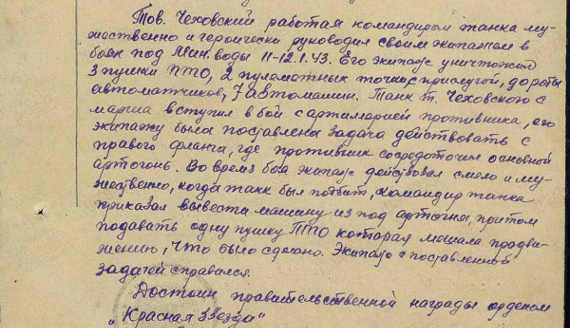 Тов. Чеховский работая командиром танка му-
жественно и героически руководил своим экипажем в
боях под Мин.воды 11-12.1.43. Его экипаж уничтожил
3 пушки ПТО, 2 пулеметных точки с прислугой, до роты
автоматчиков, 7 автомашин. Танк т. Чеховского с
марша вступил в бой с артилерией противника, его
экипажу была поставлена задача действовать с
правого фланга, где противник сосредоточил основной
артогонь. Во время боя экипаж действовал смело и му-
жественно, когда танк был подбит, командир танка
приказал вывести машину из под артогня, притом
подавать одну пушку ПТО которая мешала продви-
жению, что было сделано. Экипаж с поставленной
задачей справился.
Достоин правительственной награды орденом
„Красная Звезда"